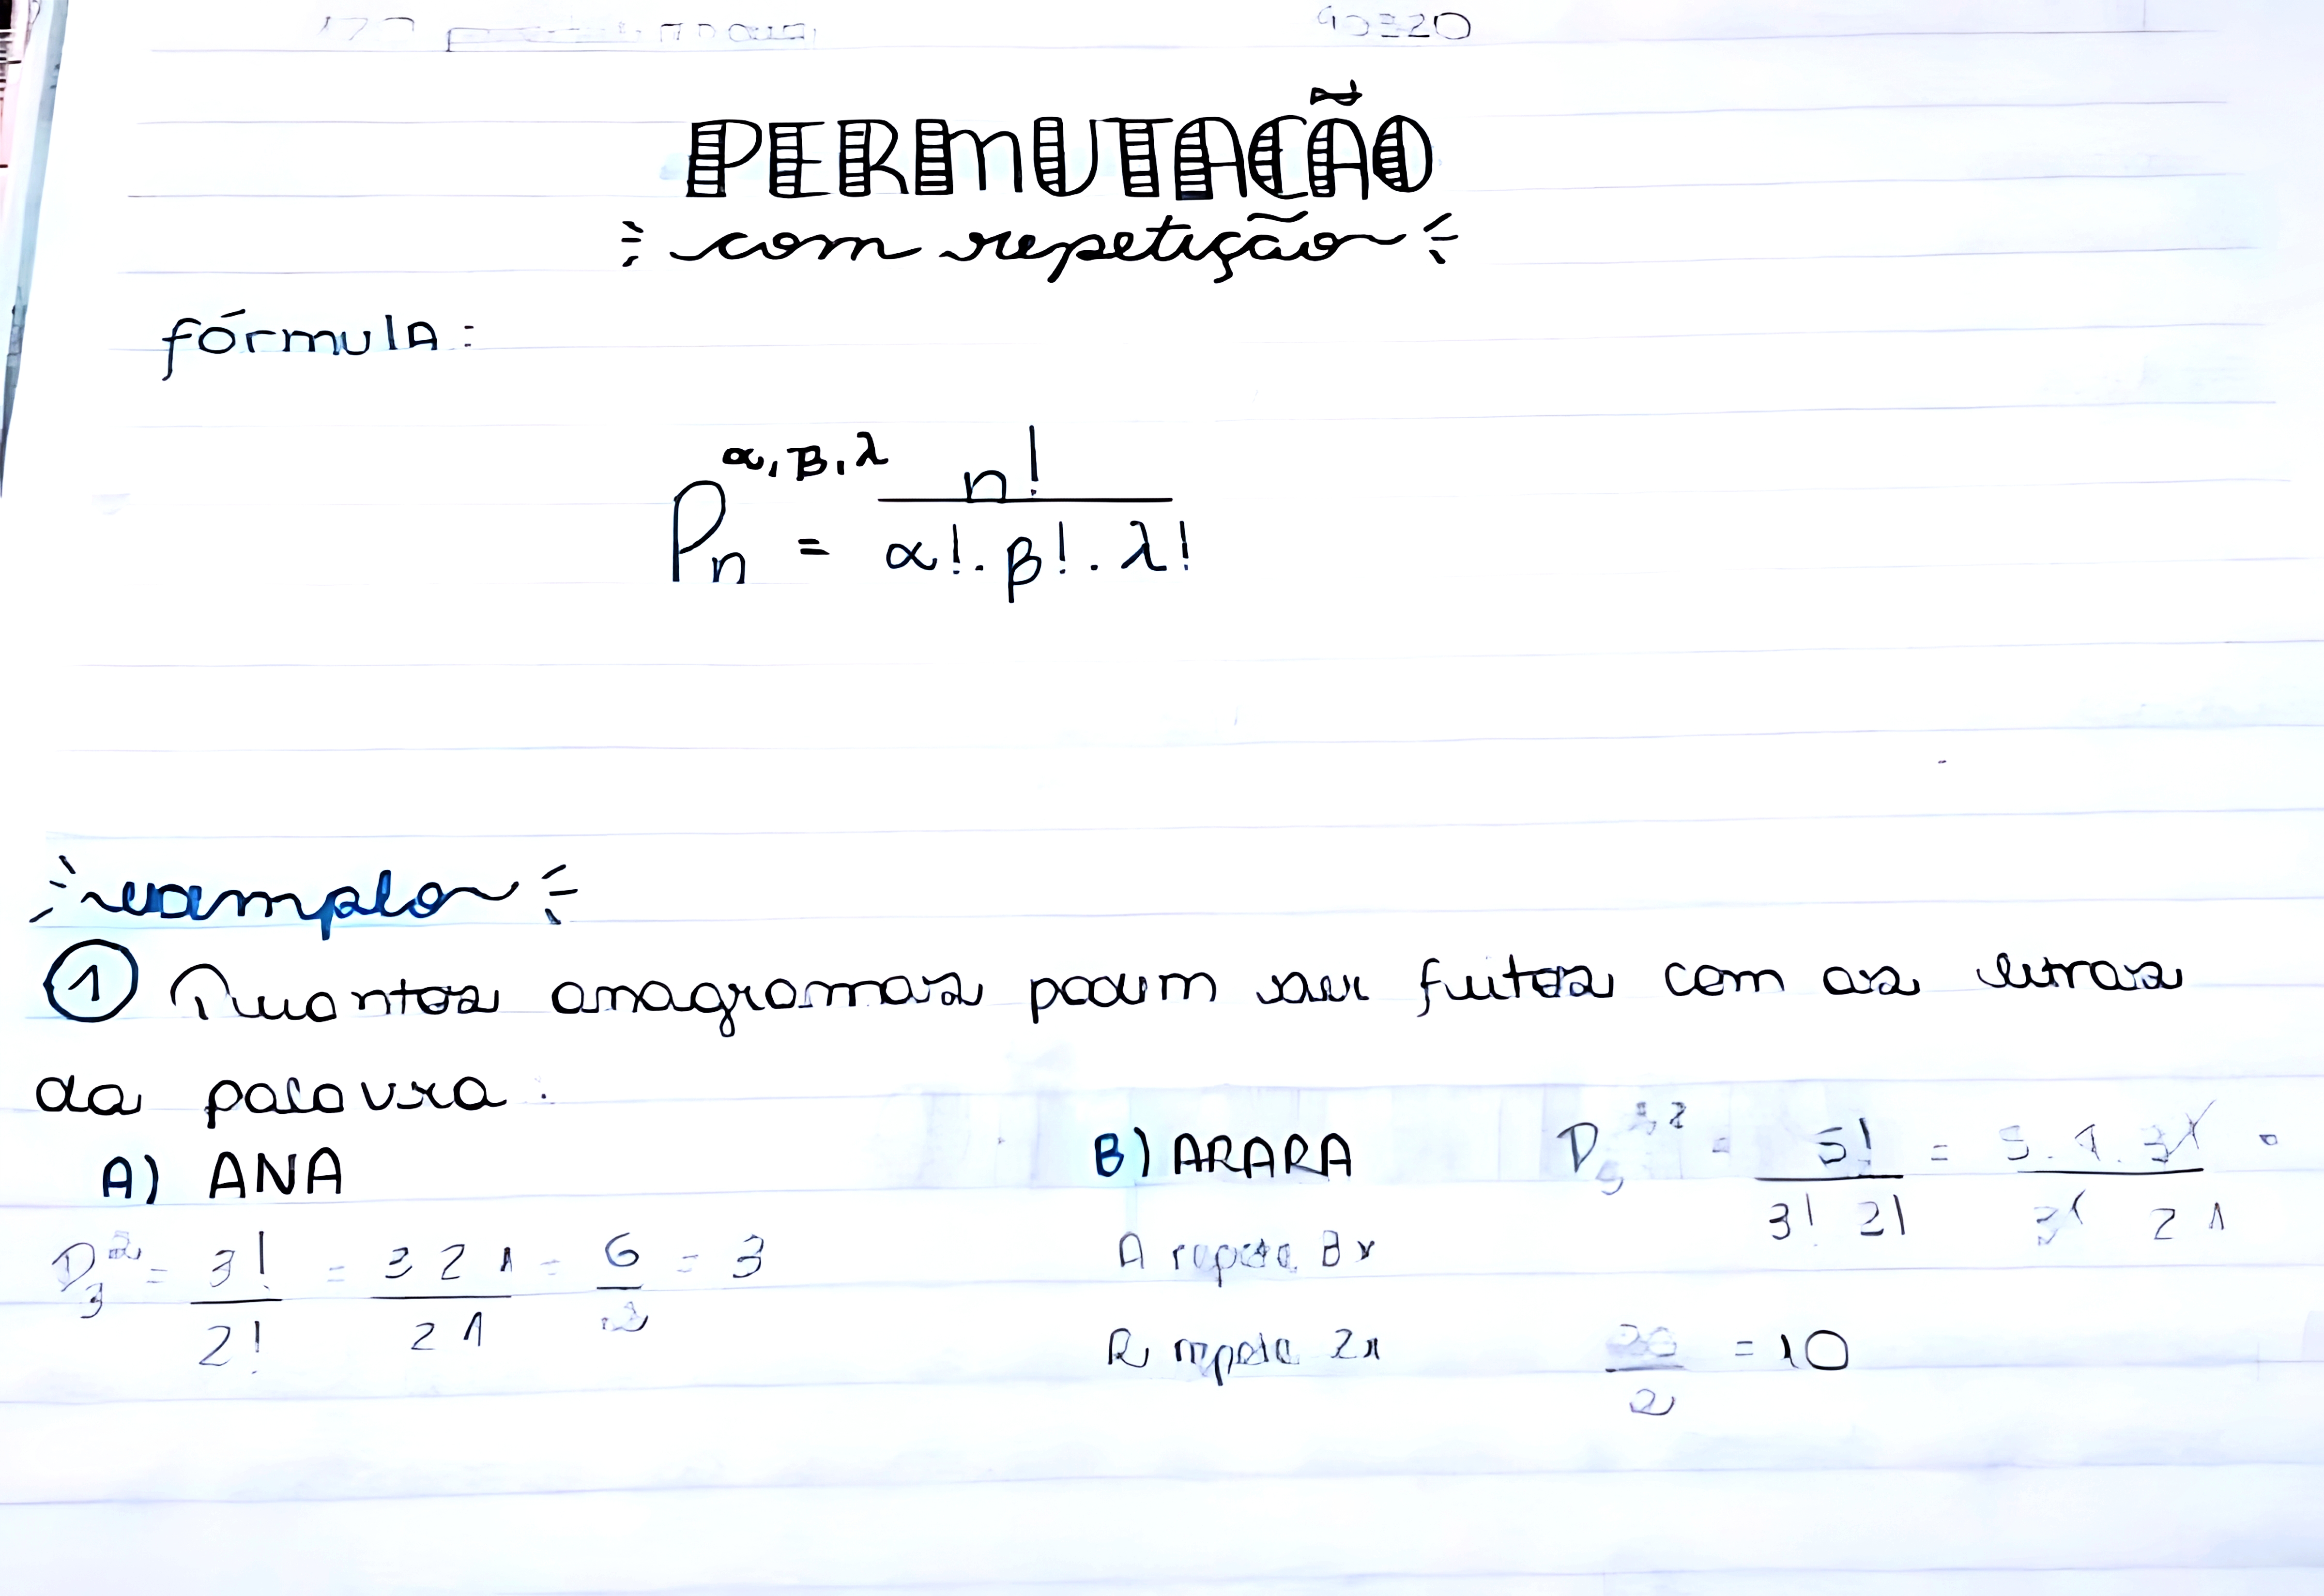 PERMUTAÇÃO
com repetição
fórmula:
P_n^{α, β, λ} = n! / α! . β! . λ!
exemplo
① Quantos anagramas podem ser feitos com as letras
da palavra:
A) ANA
P_3^2 = 3! / 2! = 3 2 1 / 2 1 = 6 / 2 = 3
B) ARARA
P_5^{3,2} = 5! / 3! 2! = 5. 4. 3! / 3! 2 1 =
A repete 3x
R repete 2x
20 / 2 = 10